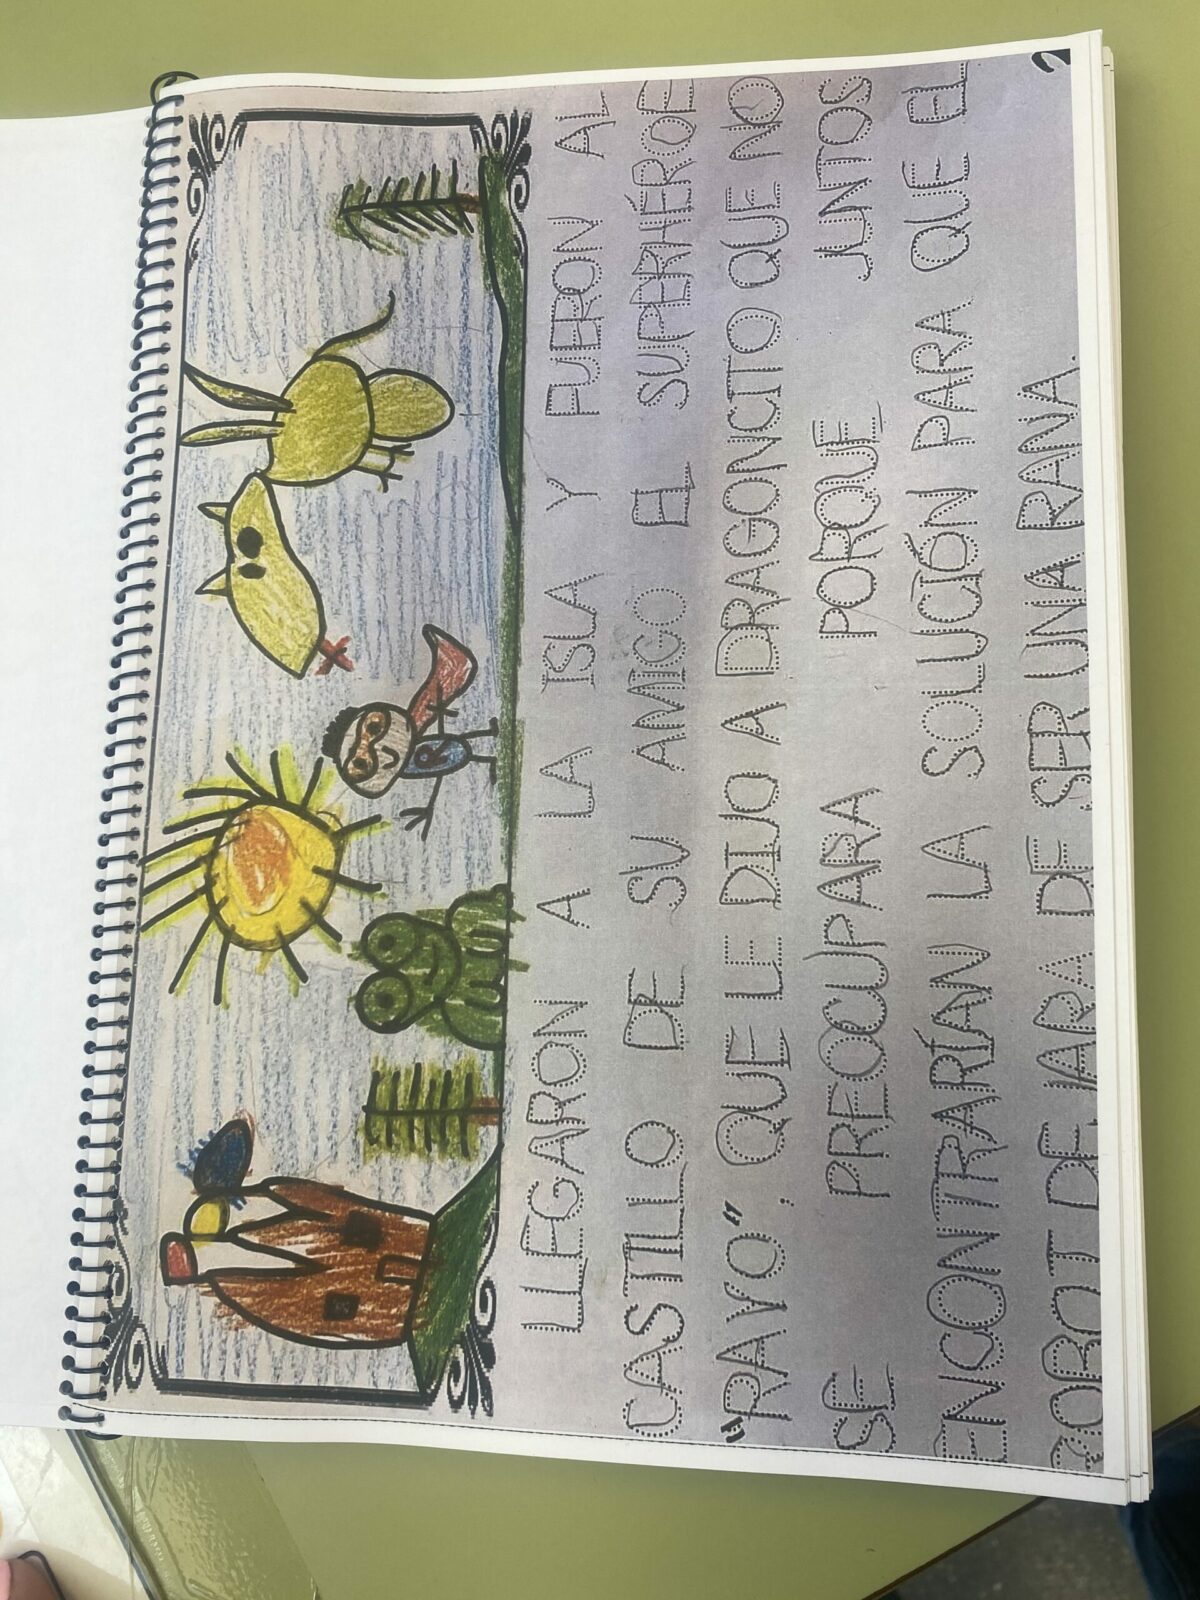 LLEGARON A LA ISLA Y FUERON AL
CASTILLO DE SU AMIGO EL SUPERHÉROE
"RAYO". QUE LE DIJO A DRAGONCITO QUE NO
SE PREOCUPARA PORQUE JUNTOS
ENCONTRARÍAN LA SOLUCIÓN PARA QUE EL
ROBOT DEJARA DE SER UNA RANA.
R